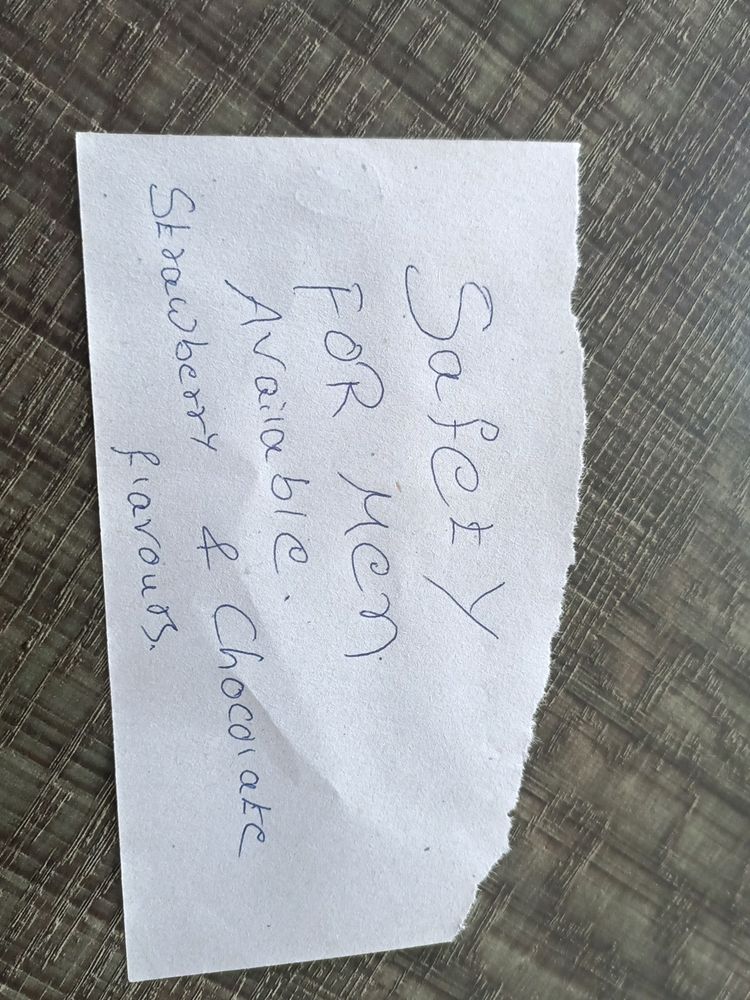 Safety
FOR Men
Available.
Strawberry & Chocolate
flavours.